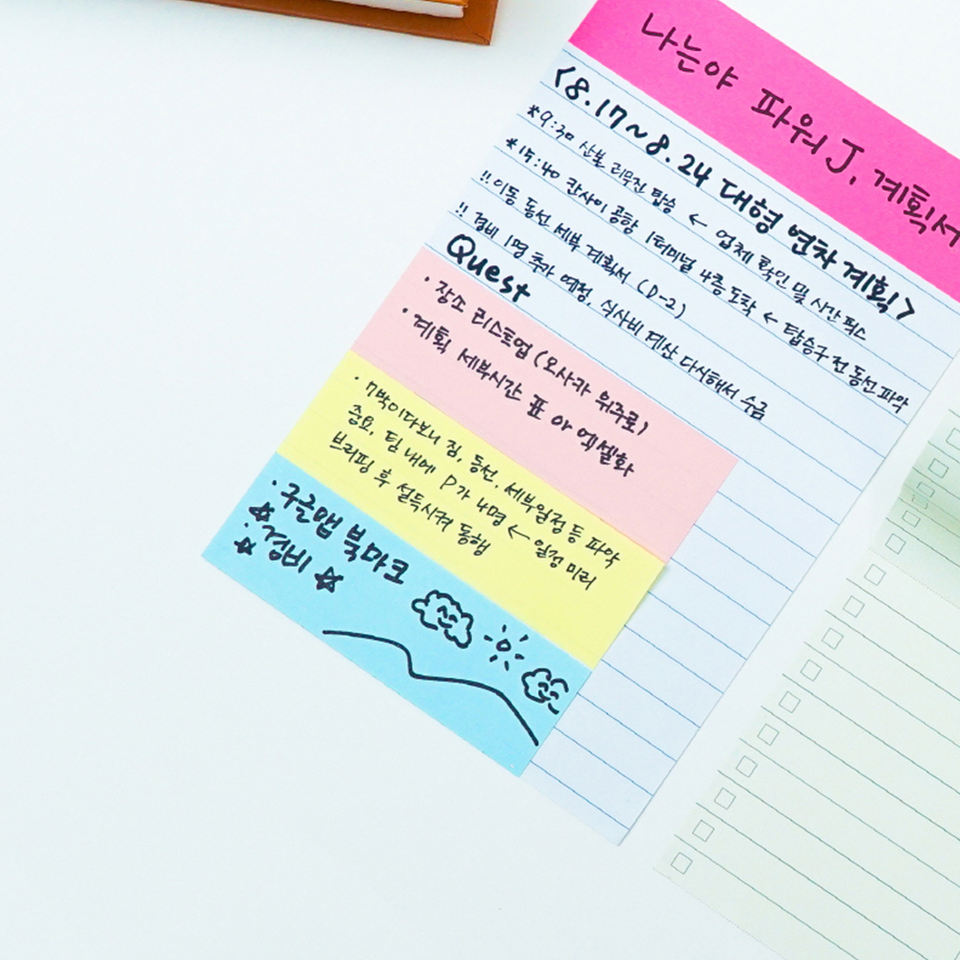 나는야 파워 J, 계획서
<8.17~8.24 대형 연차 계획>
*9:30 산본 리무진 탑승 ← 업체 확인 및 시간 픽스
*15:40 칸사이 공항 1터미널 4층 도착 ← 탑승구 전 동선 파악
!! 이동 동선 세부 계획서 (D-2)
!! 경비 1명 추가 예정, 식사비 계산 다시해서 수금
Quest
· 장소 리스트업 (오사카 위주로)
· 계획 세부시간 표 아 엑셀화
· 7박이다보니 짐, 동선, 세부일정 등 파악
중요, 팀 내에 P가 4명 ← 일정 미리
브리핑 후 설득시켜 동행
· 구글맵 북마크
☆ 경비 ☆